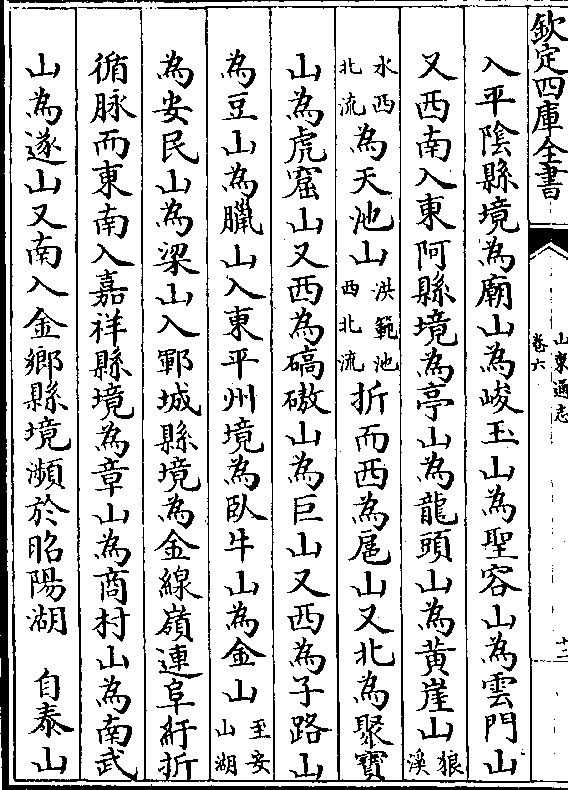 欽定四庫全書
山東通志
卷六
十二
入平陰縣境為廟山為峻玉山為聖容山為雲門山
又西南入東阿縣境為亭山為龍頭山為黄崖山狼溪
水西北流為天池山洪範池西北流折而西為扈山又北為聚寶
山為虎窟山又西為碻磝山為巨山又西為子路山
為豆山為臘山入東平州境為臥牛山為金山至安山湖
為安民山為梁山入鄆城縣境為金線嶺連阜紆折
循脉而東南入嘉祥縣境為章山為商村山為南武
山為遂山又南入金鄉縣境瀕於昭陽湖 自泰山